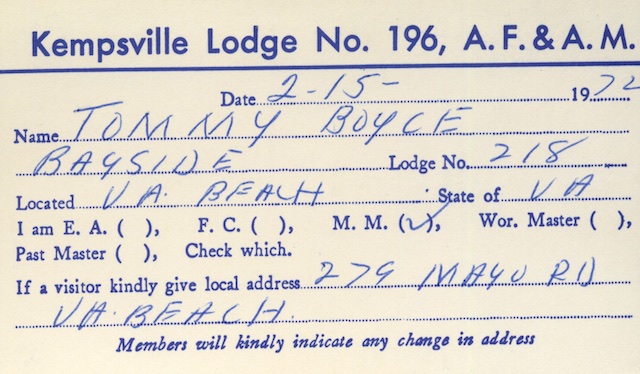 Kempsville Lodge No. 196, A. F. & A. M.
Date 2-15- 1972
Name TOMMY BOYCE
BAYSIDE Lodge No. 218
Located VA. BEACH State of VA
I am E. A. ( ), F. C. ( ), M. M. (✓), Wor. Master ( ),
Past Master ( ), Check which.
If a visitor kindly give local address 279 MAYO RD
VA. BEACH.
Members will kindly indicate any change in address